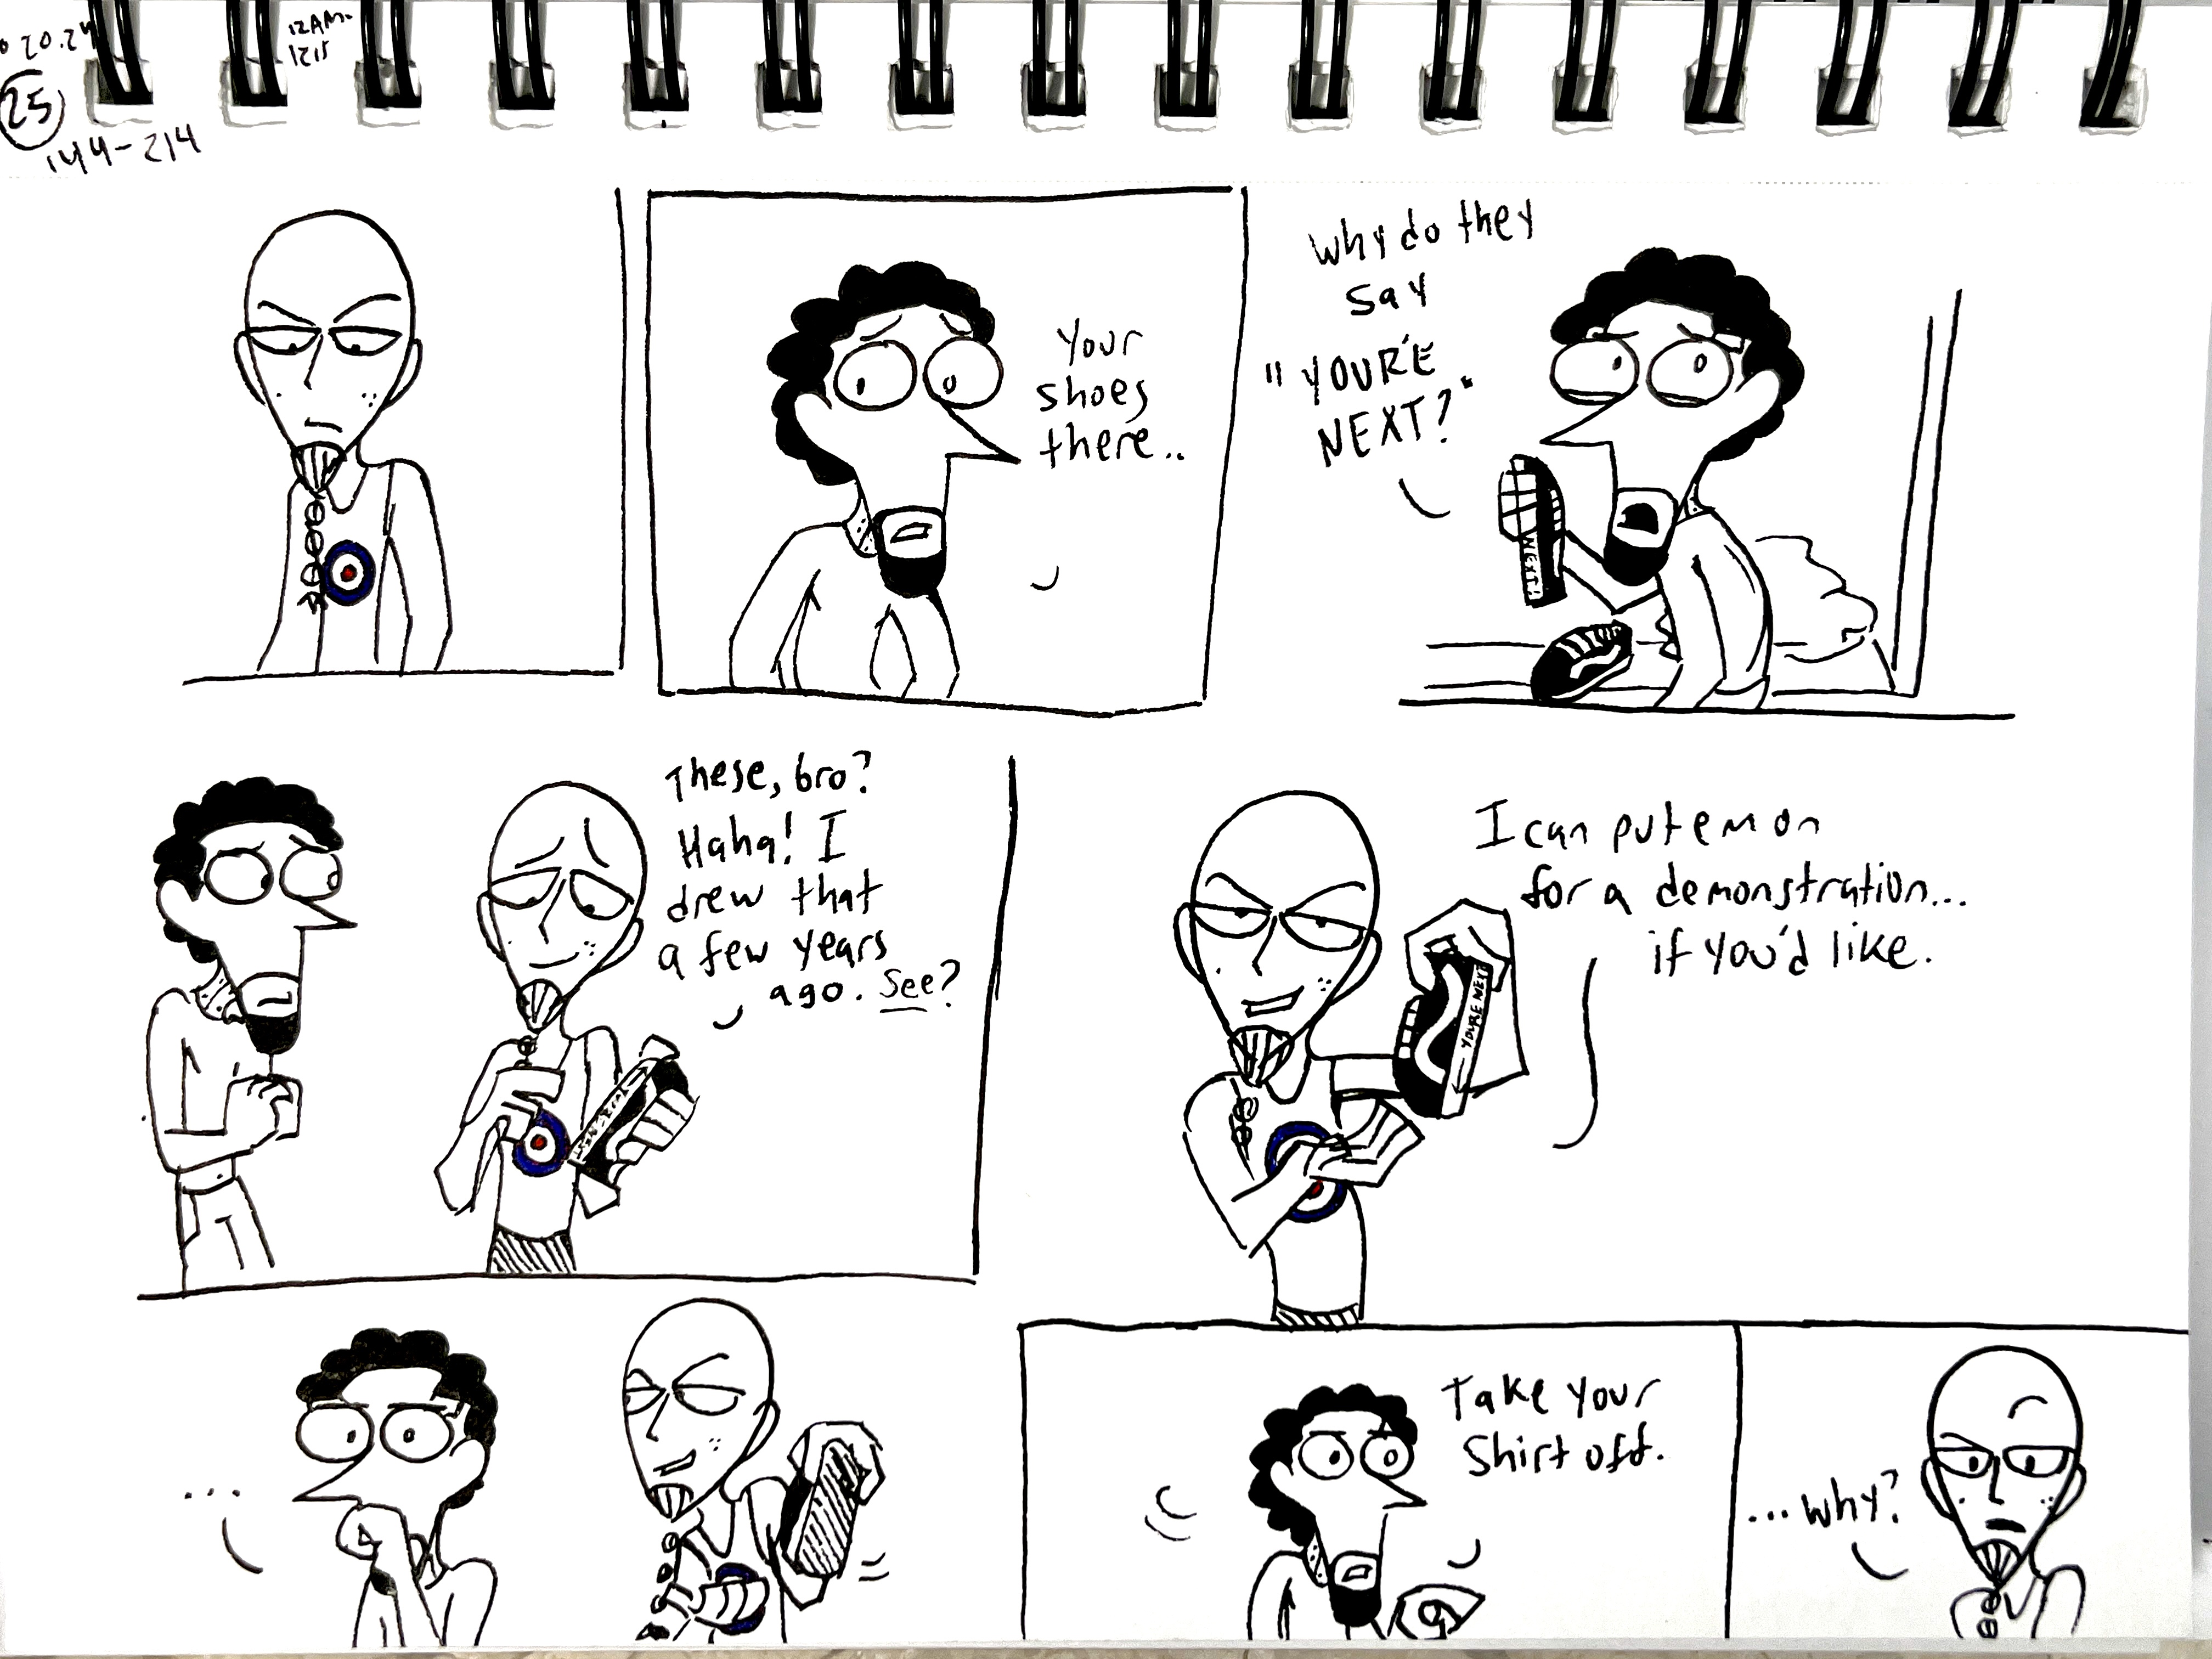 20.24
12AM-
1215
25
144-214
Your
shoes
there..
Why do they
say
"YOUR'E
NEXT?"
NEXT
These, bro?
Haha! I
drew that
a few years
ago. See?
I can put em on
for a demonstration...
if you'd like.
YOURE NEXT
...
Take your
Shirt off.
...why?